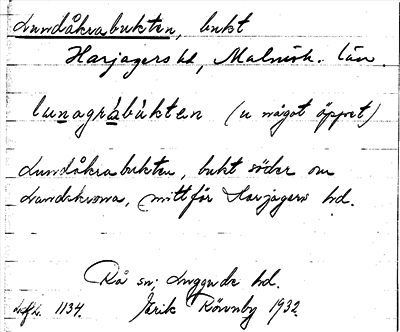 Lundåkrabukten, bukt
Harjagers hd, Malmöh. län.
lunagrábùkten (u något öppet)
Lundåkrabukten, bukt söder om
Landskrona, mitt för Harjagers hd.
Rå sn; Luggude hd.
1134. Jarik Rönnby 1932